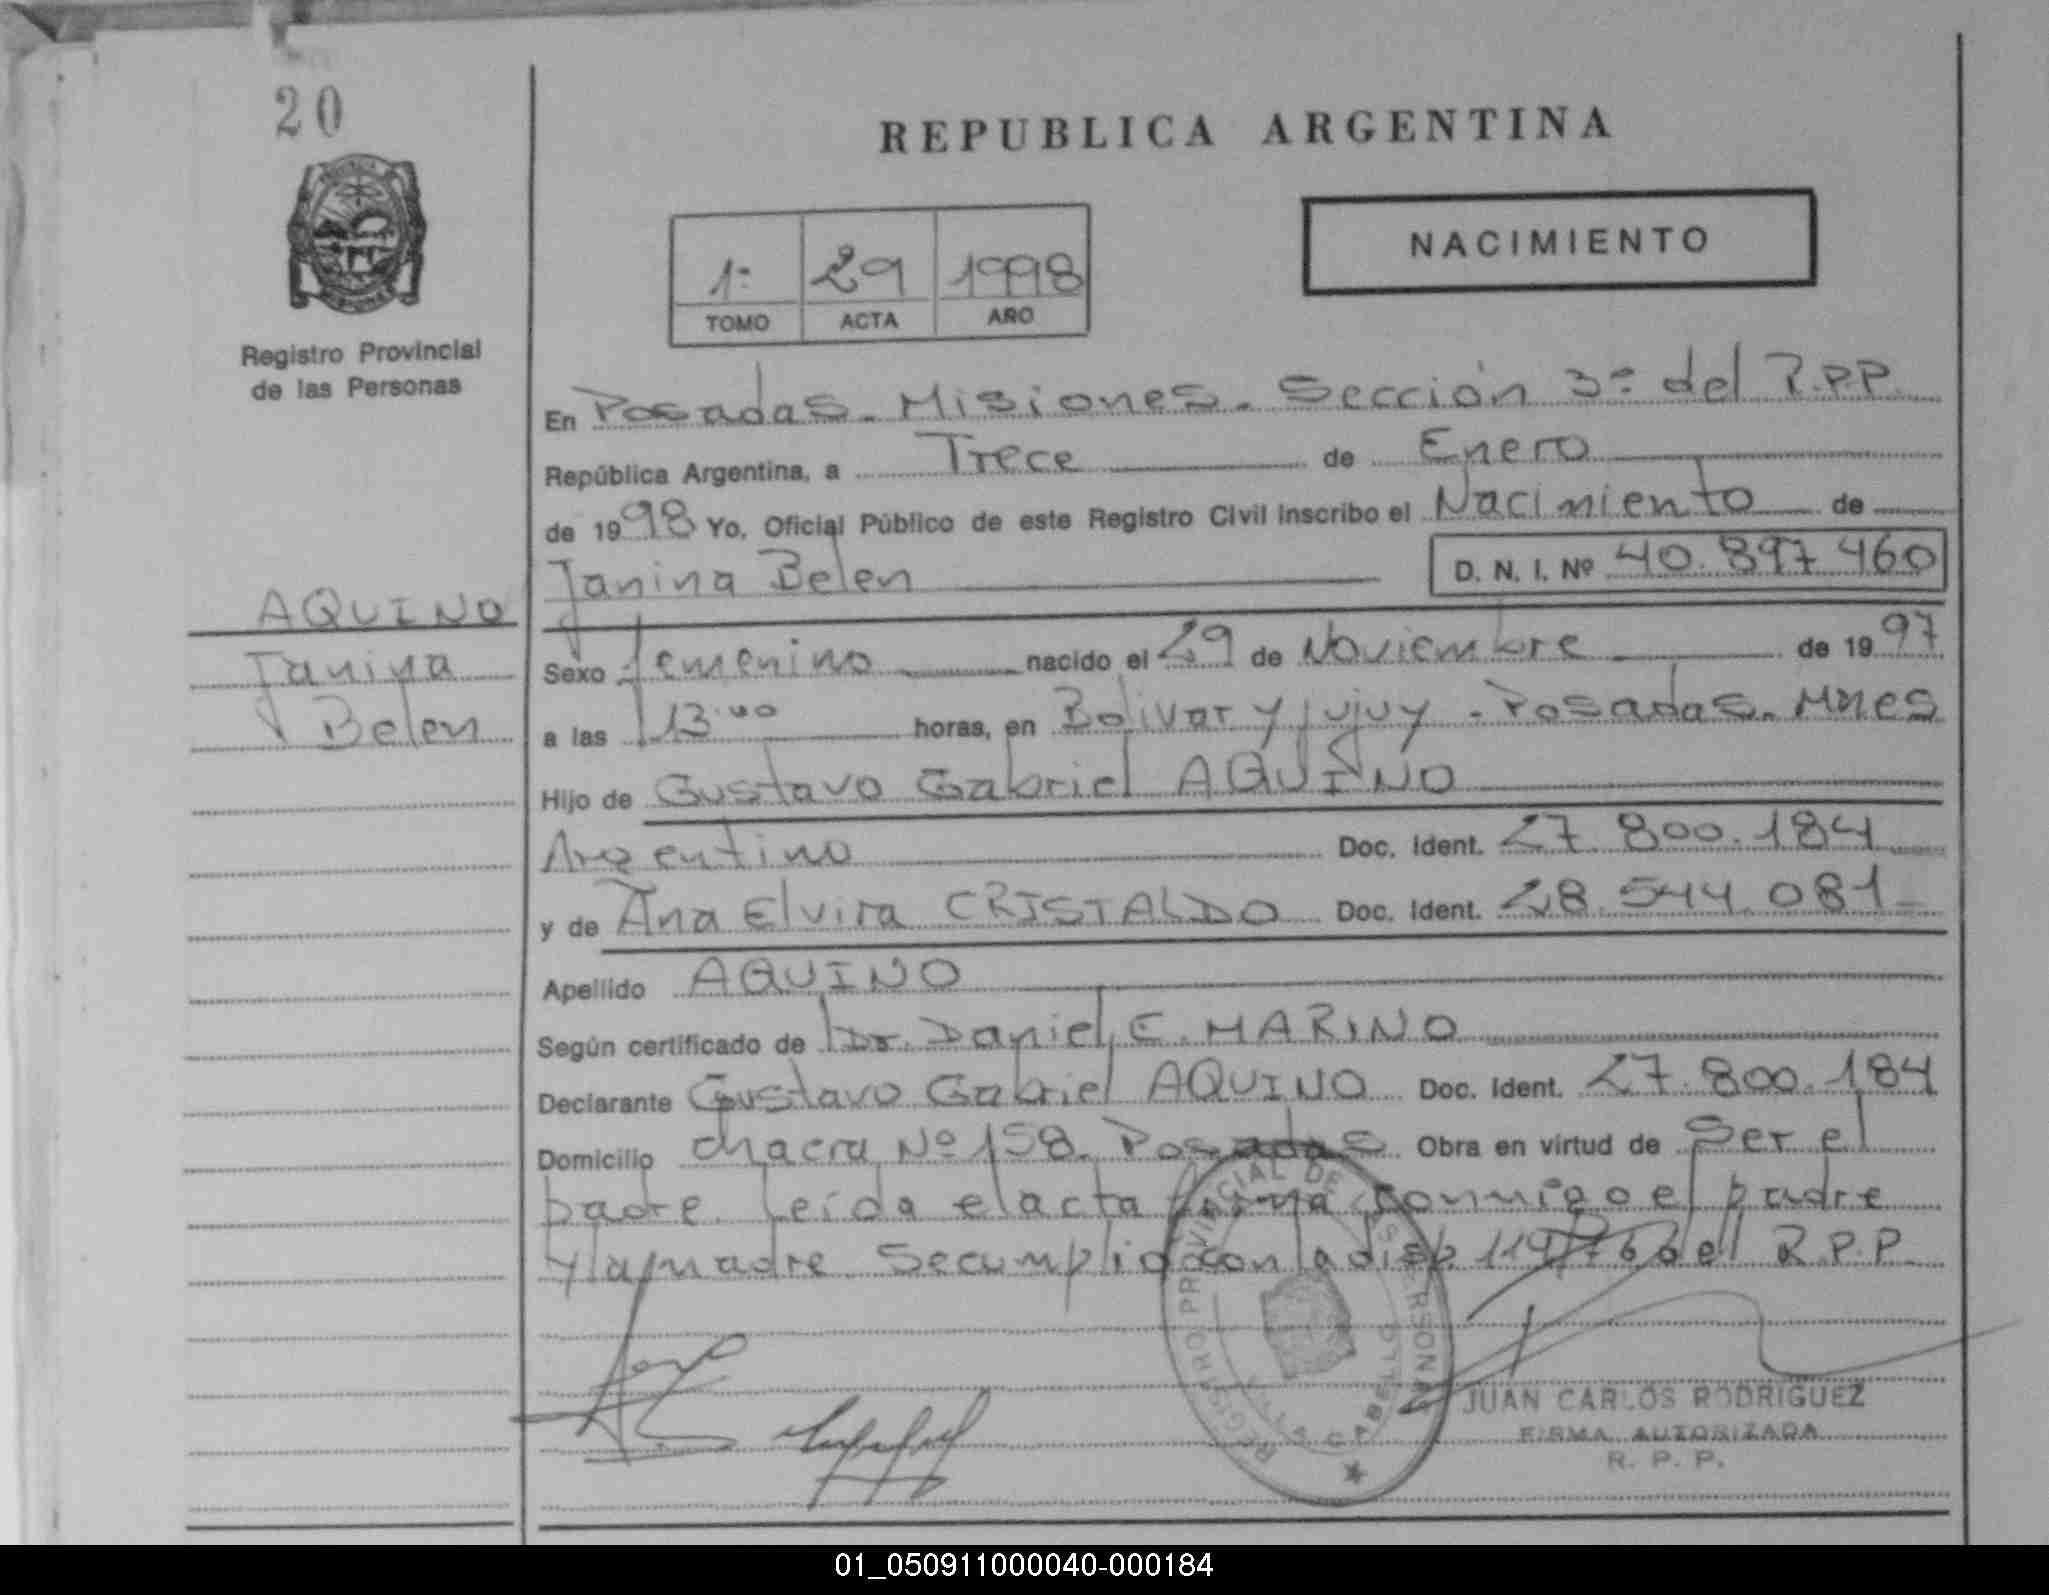 20
REPUBLICA ARGENTINA
NACIMIENTO
1º 29 1998
TOMO ACTA AÑO
Registro Provincial
de las Personas
En Posadas - Misiones - Sección 3º del R.P.P.
República Argentina, a Trece de Enero
de 1998 Yo, Oficial Público de este Registro Civil inscribo el Nacimiento de
Janina Belen D. N. I. Nº 40.897.460
AQUINO
Janina
Belen
Sexo femenino nacido el 29 de Noviembre de 1997
a las 13.00 horas, en Bolivar y Jujuy - Posadas - Mnes
Hijo de Gustavo Gabriel AQUINO
Argentino Doc. Ident. 27.800.184
y de Ana Elvira CRISTALDO Doc. Ident. 28.544.081
Apellido AQUINO
Según certificado de Dr. Daniel E. MARINO
Declarante Gustavo Gabriel AQUINO Doc. Ident. 27.800.184
Domicilio chacra Nº 158. Posadas Obra en virtud de Ser el
padre. Leida el acta firma conmigo el padre
y la madre. Se cumplio con la disp. del R.P.P.
REGISTRO PROVINCIAL DE LAS PERSONAS
JUAN CARLOS RODRIGUEZ
FIRMA AUTORIZADA
R. P. P.
01_050911000040-000184